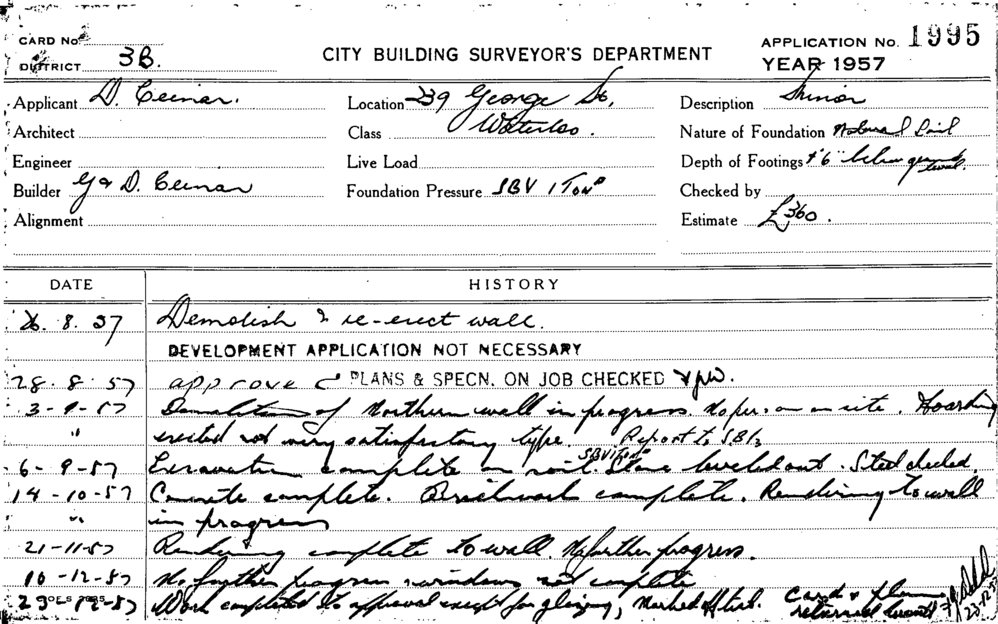 CARD No.
DISTRICT 3B.
CITY BUILDING SURVEYOR'S DEPARTMENT
APPLICATION No. 1995
YEAR 1957
Applicant D. Ceinar.
Location 239 George St.
Description Minor
Architect
Class Waterloo.
Nature of Foundation Natural Soil
Engineer
Live Load
Depth of Footings 1'6" below ground level.
Builder G & D. Ceinar
Foundation Pressure SBV 1 Ton
Checked by
Alignment
Estimate £360.
DATE
HISTORY
26. 8. 57 Demolish & re-erect wall.
DEVELOPMENT APPLICATION NOT NECESSARY
28. 8. 57 approved PLANS & SPECN. ON JOB CHECKED
3-9-57 Demolition of Northern wall in progress. No person on site. Hoarding
" erected not very satisfactory type. Report to SBI
6-9-57 Excavation complete on soil. SBV 1 Ton Stone levelled out. Steel checked.
14-10-57 Concrete complete. Brickwork complete. Rendering to wall
" in progress
21-11-57 Rendering complete to wall. No further progress.
10-12-57 No further progress windows not complete
23-12-57 Work completed to approval except for glazing, Marked off list. Card & plans returned
23-12-57